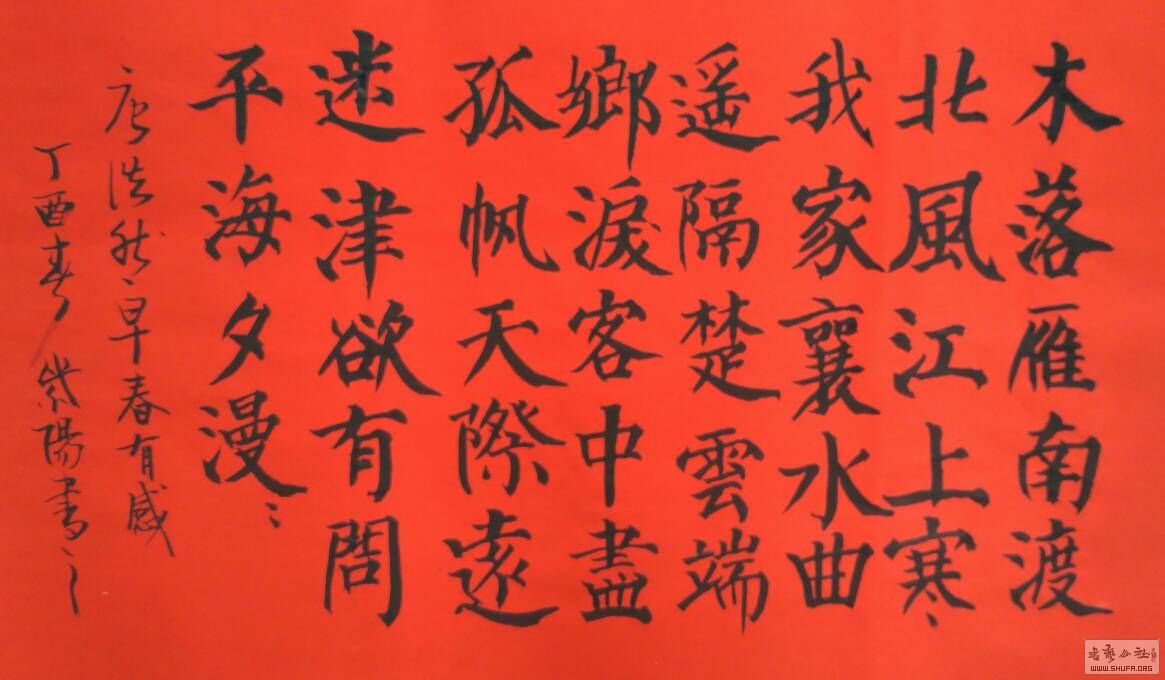 木落雁南渡
北風江上寒
我家襄水曲
遥隔楚雲端
鄉淚客中盡
孤帆天際遠
迷津欲有問
平海夕漫〻
唐浩然早春有感
丁酉春 紫陽書
書藝公社
WWW.SHUFA.ORG